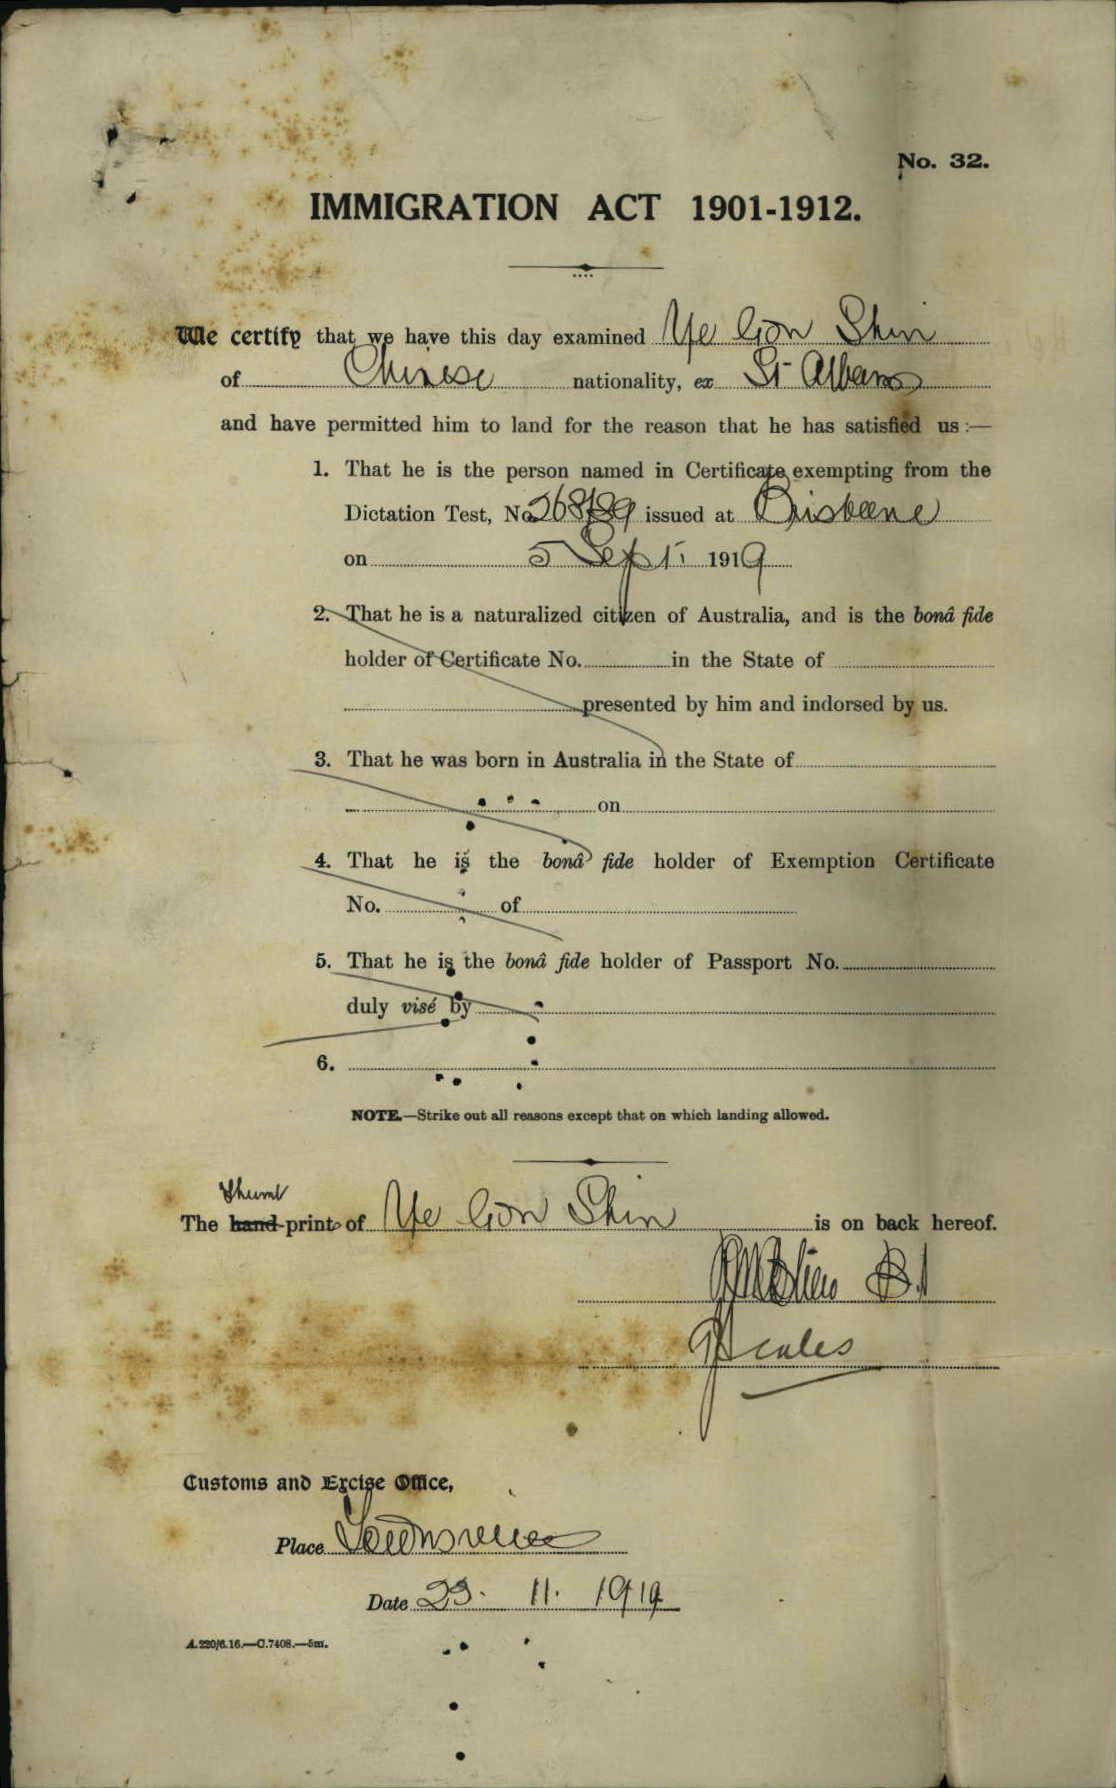 No. 32.
IMMIGRATION ACT 1901-1912.
We certify that we have this day examined Ye Gon Shin
of Chinese nationality, ex St Albans
and have permitted him to land for the reason that he has satisfied us :—
1. That he is the person named in Certificate exempting from the
Dictation Test, No. issued at Brisbane
on 5 Sept. 1919
2. That he is a naturalized citizen of Australia, and is the bonâ fide
holder of Certificate No. in the State of
presented by him and indorsed by us.
3. That he was born in Australia in the State of
on
4. That he is the bonâ fide holder of Exemption Certificate
No. of
5. That he is the bonâ fide holder of Passport No.
duly visé by
6.
NOTE.—Strike out all reasons except that on which landing allowed.
Thumb
The hand print of Ye Gon Shin is on back hereof.
Customs and Excise Office,
Place Townsville
Date 23. 11. 1919
A.220/6.16.—C.7408.—5m.